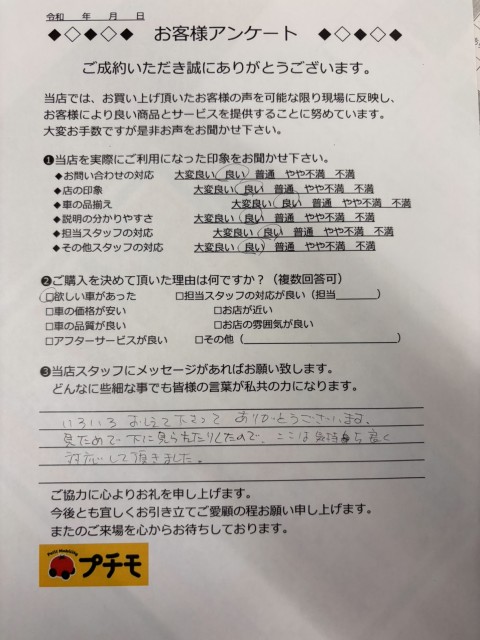 令和 年 月 日
◆◇◆◇◆ お客様アンケート ◆◇◆◇◆
ご成約いただき誠にありがとうございます。
当店では、お買い上げ頂いたお客様の声を可能な限り現場に反映し、
お客様により良い商品とサービスを提供することに努めています。
大変お手数ですが是非お声をお聞かせ下さい。
❶当店を実際にご利用になった印象をお聞かせ下さい。
◆お問い合わせの対応 大変良い 良い 普通 やや不満 不満
◆店の印象 大変良い 良い 普通 やや不満 不満
◆車の品揃え 大変良い 良い 普通 やや不満 不満
◆説明の分かりやすさ 大変良い 良い 普通 やや不満 不満
◆担当スタッフの対応 大変良い 良い 普通 やや不満 不満
◆その他スタッフの対応 大変良い 良い 普通 やや不満 不満
❷ご購入を決めて頂いた理由は何ですか？（複数回答可）
□欲しい車があった □担当スタッフの対応が良い（担当　　　）
□車の価格が安い □お店が近い
□車の品質が良い □お店の雰囲気が良い
□アフターサービスが良い □その他（　　　）
❸当店スタッフにメッセージがあればお願い致します。
どんなに些細な事でも皆様の言葉が私共の力になります。
いろいろ おしえて下さって ありがとうございます、
見ためで下に見られたりしたので、ここは気持ち良く
対応して頂きました。
ご協力に心よりお礼を申し上げます。
今後とも宜しくお引き立てご愛顧の程お願い申し上げます。
またのご来場を心からお待ちしております。
Petit Mobility
プチモ